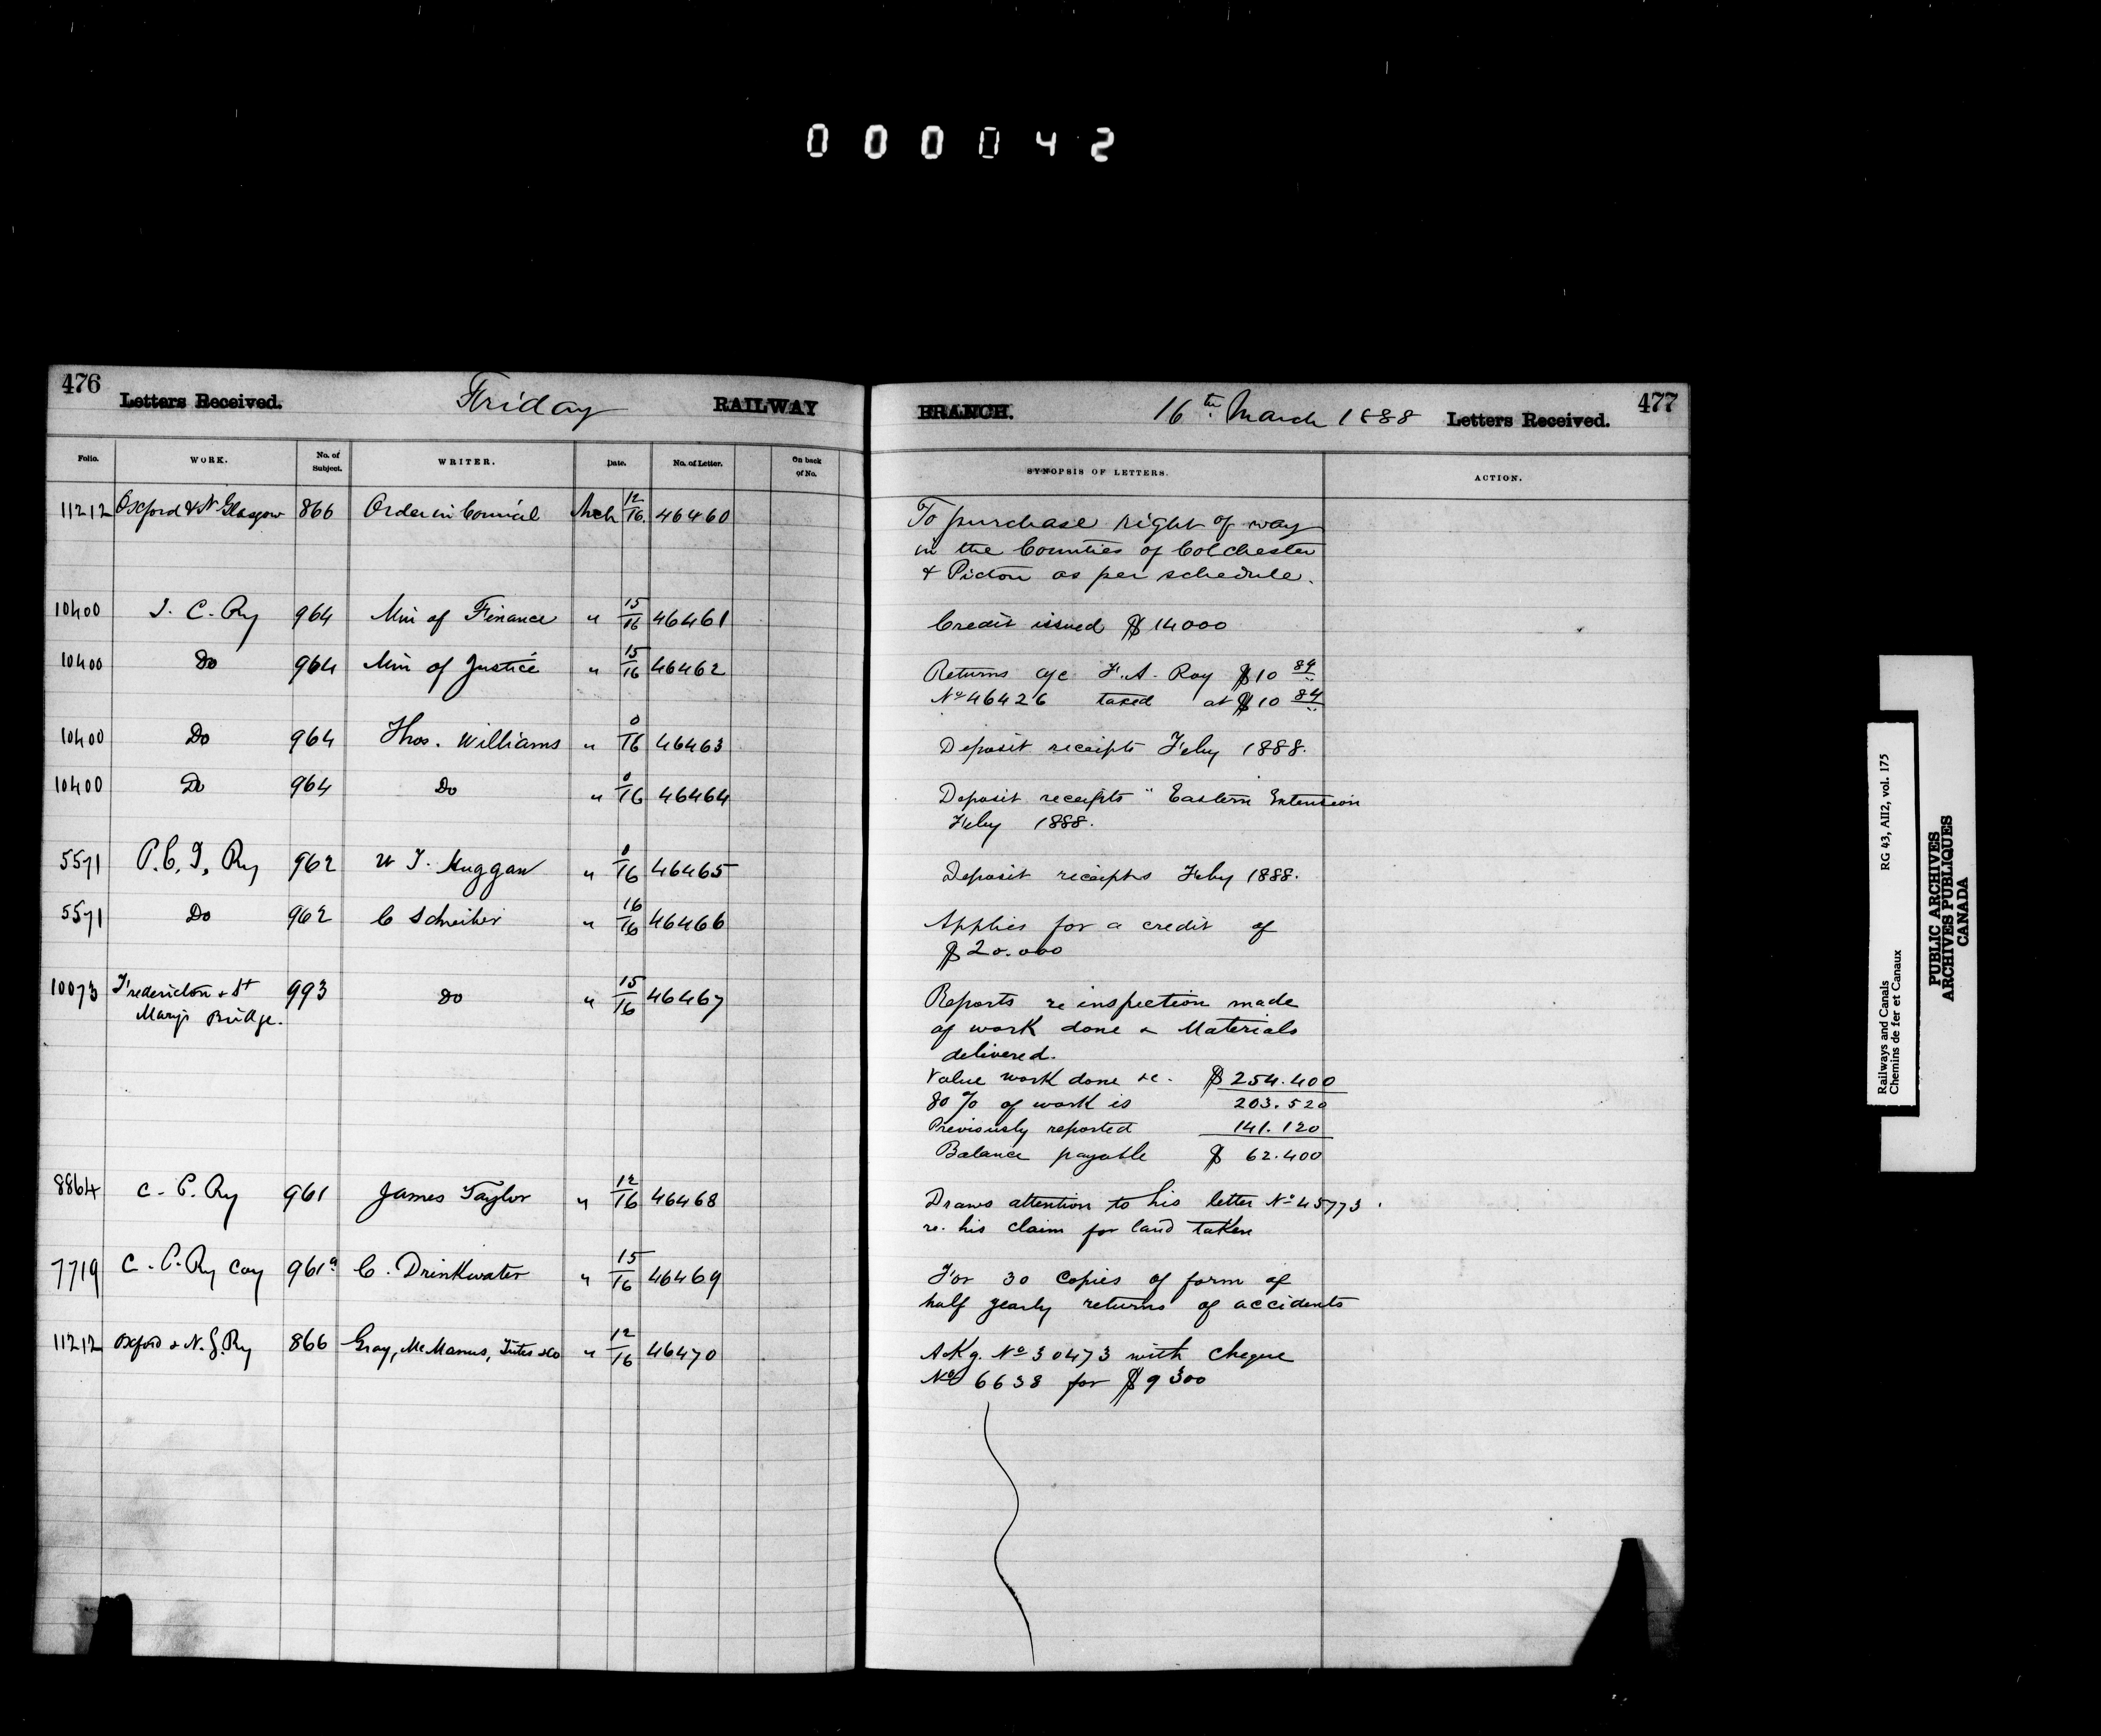 000042
476 Letters Received. Friday RAILWAY
BRANCH. 16th March 1888 Letters Received. 477
Folio. WORK. No. of Subject. WRITER. Date. No. of Letter. On back of No. SYNOPSIS OF LETTERS. ACTION.
11212 Oxford & N Glasgow 866 Order in Council Mch 12/16 46460 To purchase right of way
in the Counties of Colchester
& Pictou as per schedule.
10400 I. C. Ry 964 Min of Finance " 15/16 46461 Credit issued $14000
10400 Do 964 Min of Justice " 15/16 46462 Returns a/c F. A. Roy $10 84
No 46426 taxed at $10 84
10400 Do 964 Thos. Williams " 0/16 46463 Deposit receipts Feby 1888.
10400 Do 964 Do " 0/16 46464 Deposit receipts " Eastern Extension
Feby 1888.
5571 P. E. I. Ry 962 W T. Huggan " 0/16 46465 Deposit receipts Feby 1888.
5571 Do 962 C Schreiber " 16/16 46466 Applies for a credit of
$20.000
10073 Fredericton & St 993 Do " 15/16 46467 Reports re inspection made
Mary's Bridge. of work done & Materials
delivered.
Value work done &c. $254.400
80% of work is 203.520
Previously reported 141.120
Balance payable $ 62.400
8864 C. P. Ry 961 James Taylor " 12/16 46468 Draws attention to his letter No 45773.
re. his claim for land taken
7719 C. P. Ry Coy 961a C. Drinkwater " 15/16 46469 For 30 copies of form of
half yearly returns of accidents
11212 Oxford & N. G. Ry 866 Gray, McManus, Tutes &Co " 12/16 46470 AKg. No 30473 with cheque
No 6638 for $9300
Railways and Canals RG 43, AII2, vol. 175
Chemins de fer et Canaux
PUBLIC ARCHIVES
ARCHIVES PUBLIQUES
CANADA